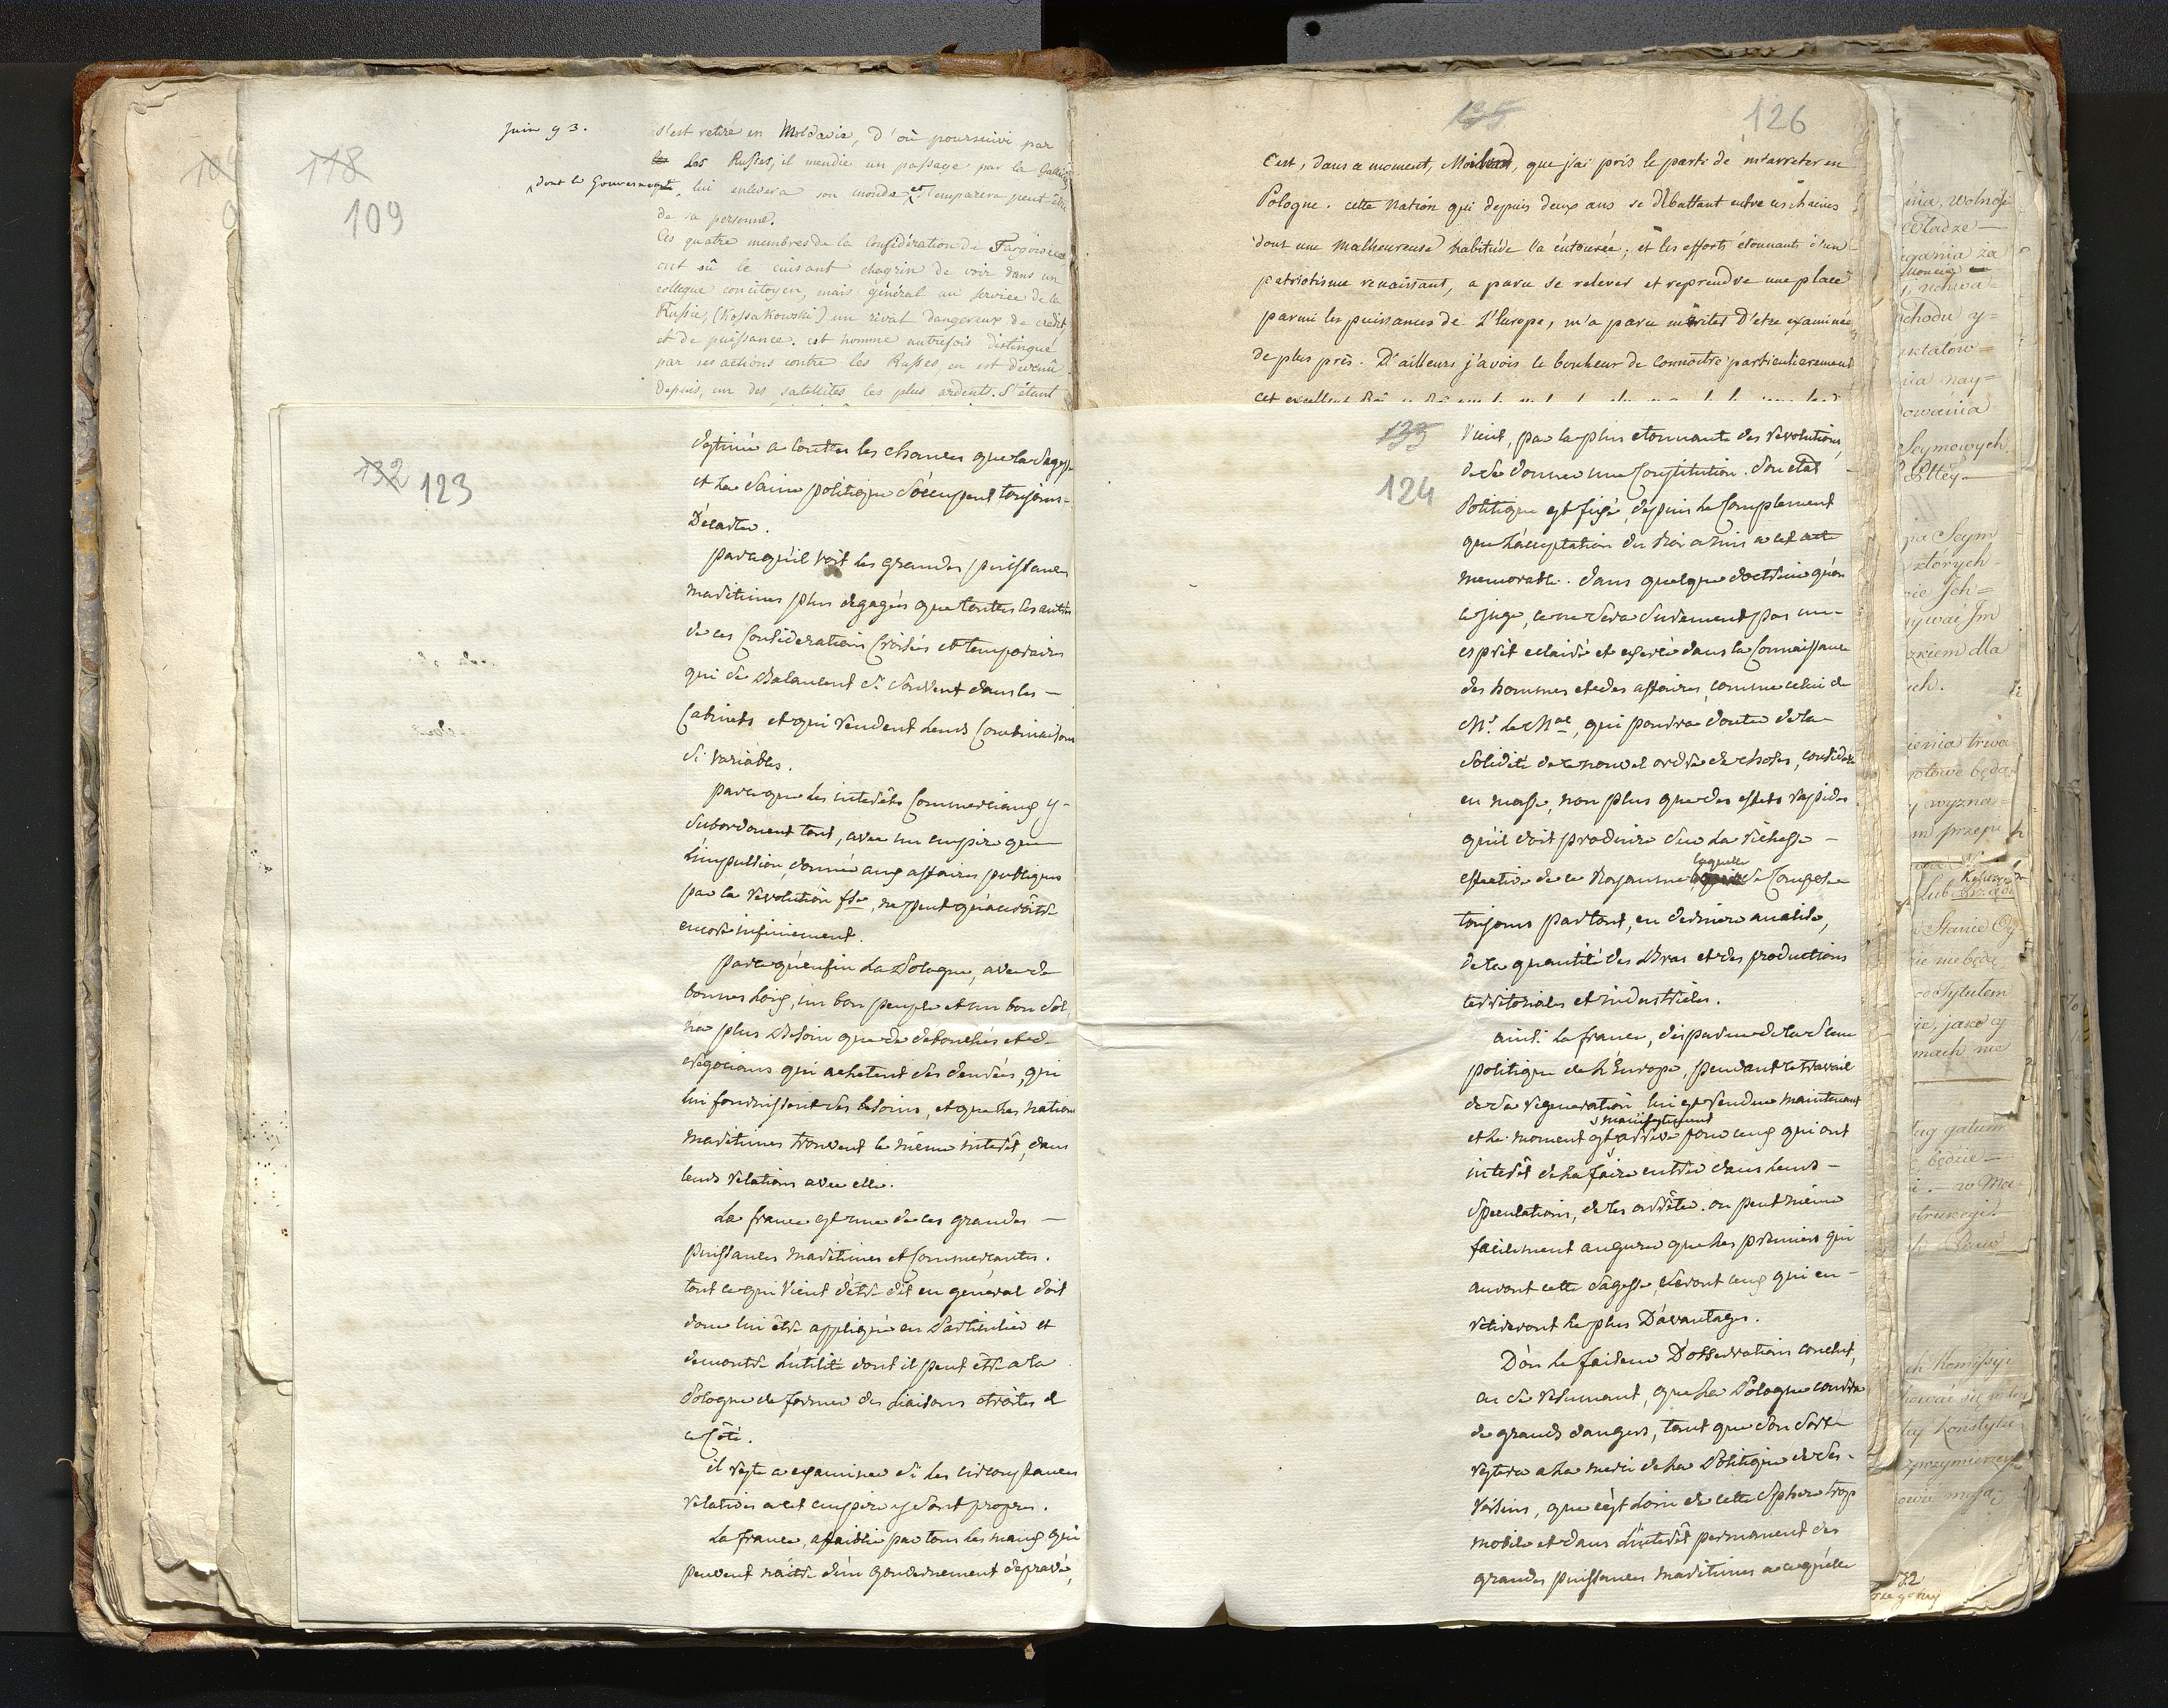 118
109
juin 93.
s'est retiré en Moldavie, d'où poursuivi par
les Russes, il mendie un passage par la Gallicie
dont le Gouvernement, lui enlevera son monde, et s'emparera peut être
de sa personne.
Ces quatre membres de la Confédération de Targowica
ont eû le cuisant chagrin de voir dans un
collegue concitoyen, mais général au service de la
Russie, (Kossakowski) un rival dangereux de crédit,
et de puissance. cet homme autrefois distingué
par ses actions contre les Russes, en est devenû
depuis, un des satellites les plus ardents. S'étant
132 123
destinée a toutes les chances que la sagesse
et la saine politique s'occupent toujours
D'écarter.
parcequ'il voit les grandes puissances
maritimes plus degagées que toutes les autres
de ces Considerations Croisées et temporaires
qui se Balancent si souvent dans les
Cabinets et qui rendent leurs Combinaisons
si variables.
parceque les interêts Commerciaux y
subordonnent tout, avec un empire que
l'impulsion, donnée aux affaires publiques
par la révolution fse, ne peut qu'accroitre
encore infiniment.
parcequ'enfin La Pologne, avec de
bonnes loix, un bon peuple et un bon sol,
n'a plus Besoin que de debouchés et de
négocians qui achetent ses denrées, qui
lui fournissent ses besoins, et que les nations
maritimes trouvent le même interêt, dans
leurs rélations avec elle.
La france est une de ces grandes
puissances maritimes et Commercantes.
tout ce qui vient d'être dit en general doit
donc lui être appliqué en Particulier et
demontre l'utilité dont il peut être a la
Pologne de former des liaisons etroites de
ce Côté.
il reste a examiner si les circonstances
rélatives a cet empire y sont propres.
La france, affaiblie par tous les maux qui
peuvent naître d'un gouvernement depravé,
125 126
C'est, dans ce moment, que j'ai pris le parti de m'arreter en
Pologne. cette Nation qui depuis deux ans se débattant entre les chaines
dont une Malheureuse habitude l'a entourée; et les efforts étonnants d'un
patriotisme renaissant, a paru se relever et reprendre une place
parmi les puissances de L'Europe, m'a paru mériter D'etre examinée
de plus près. D'ailleurs j'avois le bonheur de connoitre particulierement
cet excellent
133
124
vient, par la plus etonnante des révolutions,
de se donner une Constitution. Son etat
Politique est fixé, depuis le Complement
que l'acceptation du Roi a mis a cet acte
memorable. dans quelque doctrine qu'on
le juge, ce ne sera surement pas un
esprit eclairé et exercé dans la Connaissance
des hommes et des affaires, comme celui de
Mr. le Mal, qui poudra douter de la
solidité de ce nouvel ordre de choses, consideré
en masse, non plus que des effets rapides
qu'il doit produire sur la richesse
effective de ce Royaume laquelle se Compose
toujours partout, en derniere analise,
de la quantité des Bras et des productions
territoriales et industrielles.
ainsi la france, disparue de la scene
politique de L'Europe, pendant le travail
de sa regeneration lui est rendue maintenant
et le moment est manifestement arrivé pour ceux qui ont
interêt de la faire entrer dans leurs
speculations, de les arrêter. on peut même
facilement augurer que les premiers qui
auront cette sagesse, seront ceux qui en
retireront le plus D'avantages.
D'où le faiseur D'observations conclut,
en se resumant, que la Pologne courra
de grands dangers, tant que son sort
restera a la merci de la Politique de ses
voisins, que c'est loin de cette sphere trop
mobile et dans l'interêt permanent des
grandes puissances maritimes a ce qu'elle